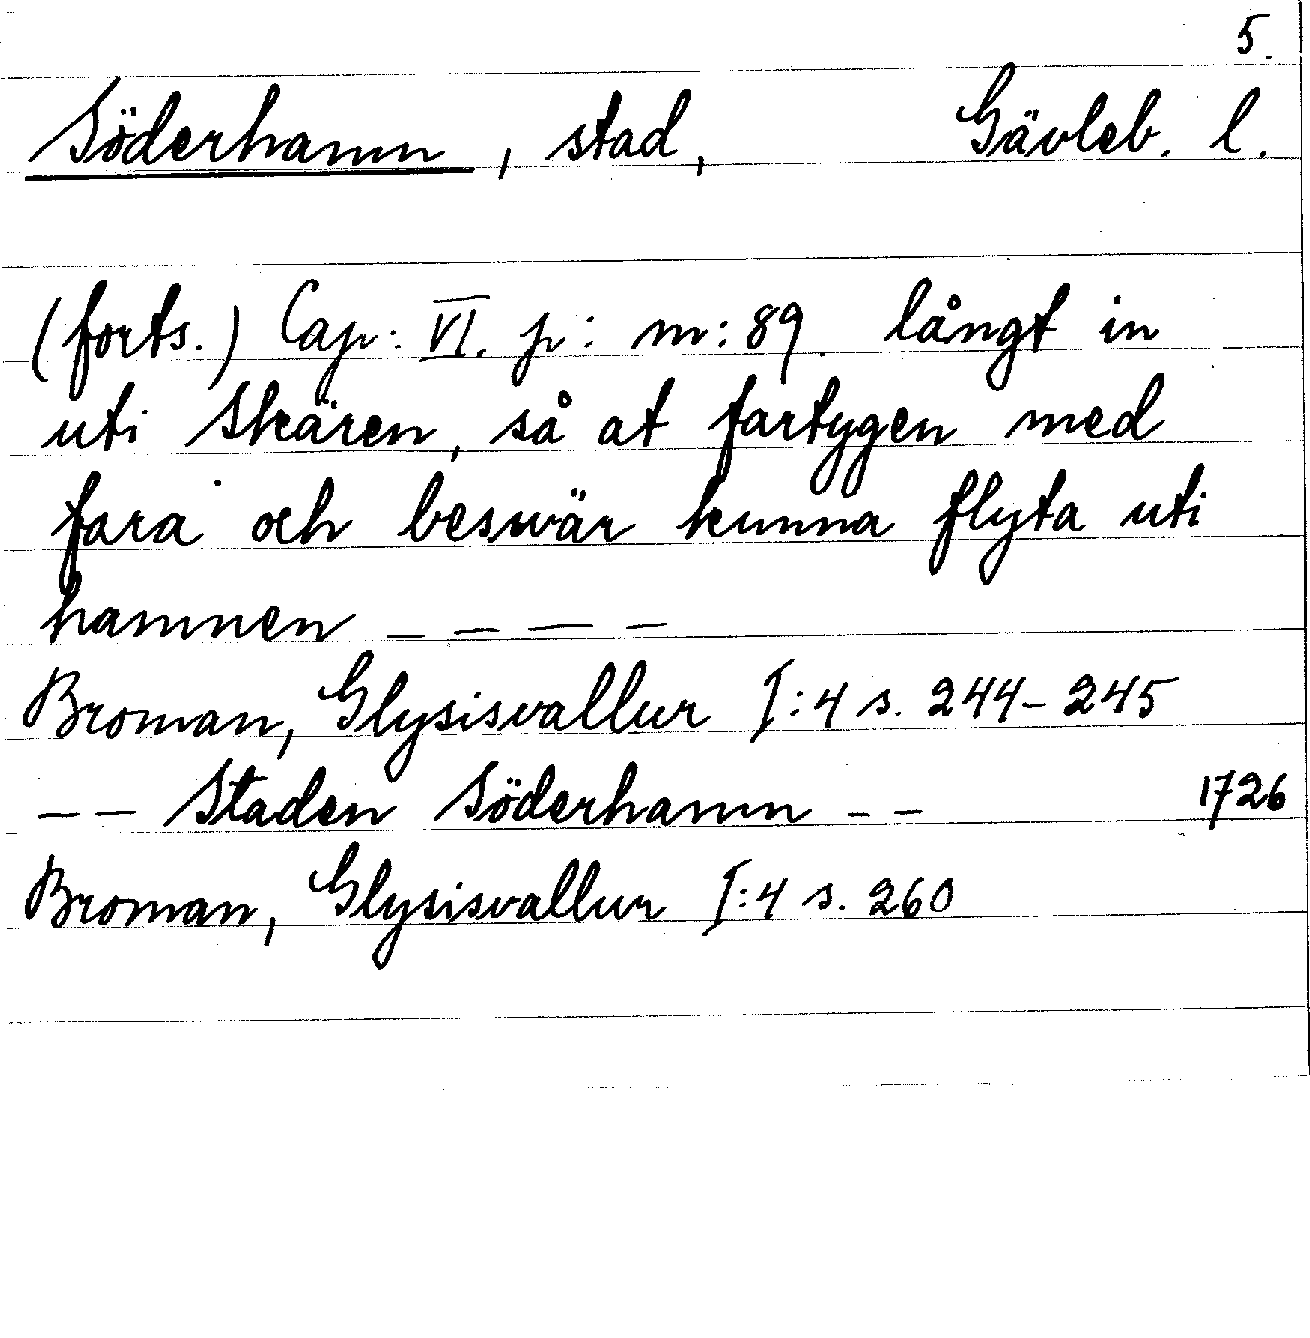 5.
Söderhamn, stad, Gävleb. l.
(forts.) Cap: VI. p: m: 89. långt in
uti Skären, så at fartygen med
fara och beswär kunna flyta uti
hamnen _ _ _ _
Broman, Glysisvallur I:4 s. 244-245
_ _ Staden Söderhamn _ _ 1726
Broman, Glysisvallur I:4 s. 260